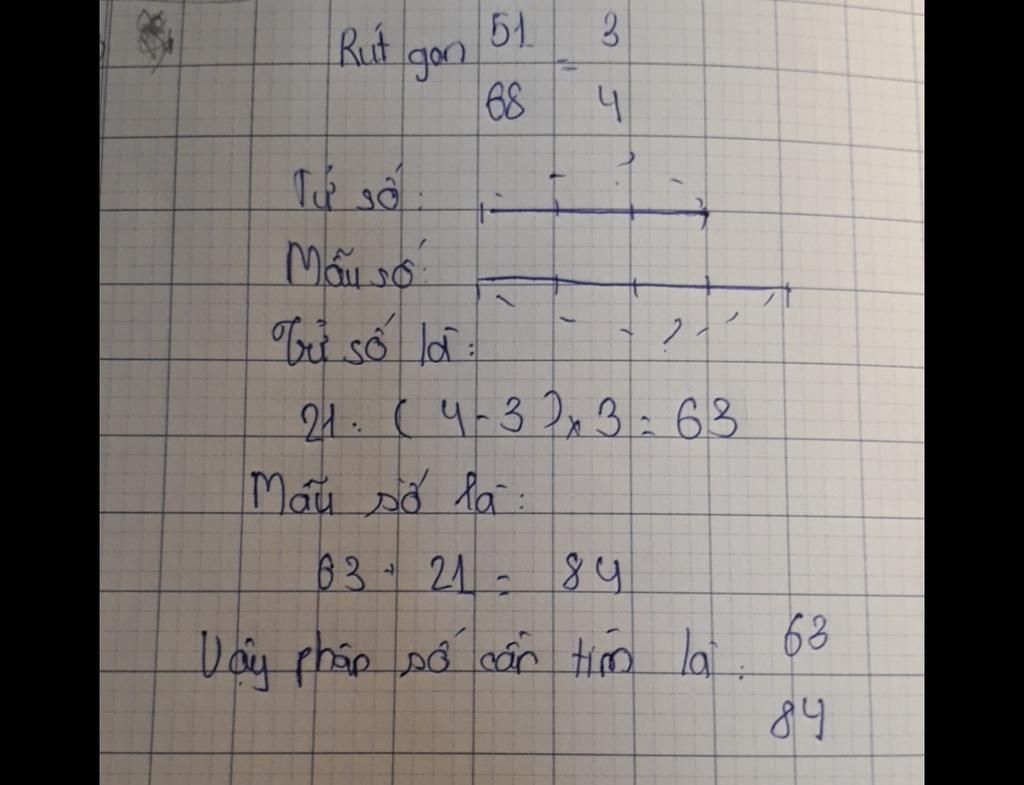 Rút gọn 51/68 = 3/4
Tử số:
?
Mẫu số:
?
Tử số là:
21 : ( 4 - 3 ) x 3 = 63
Mẫu số là:
63 + 21 = 84
Vậy phân số cần tìm là: 63/84